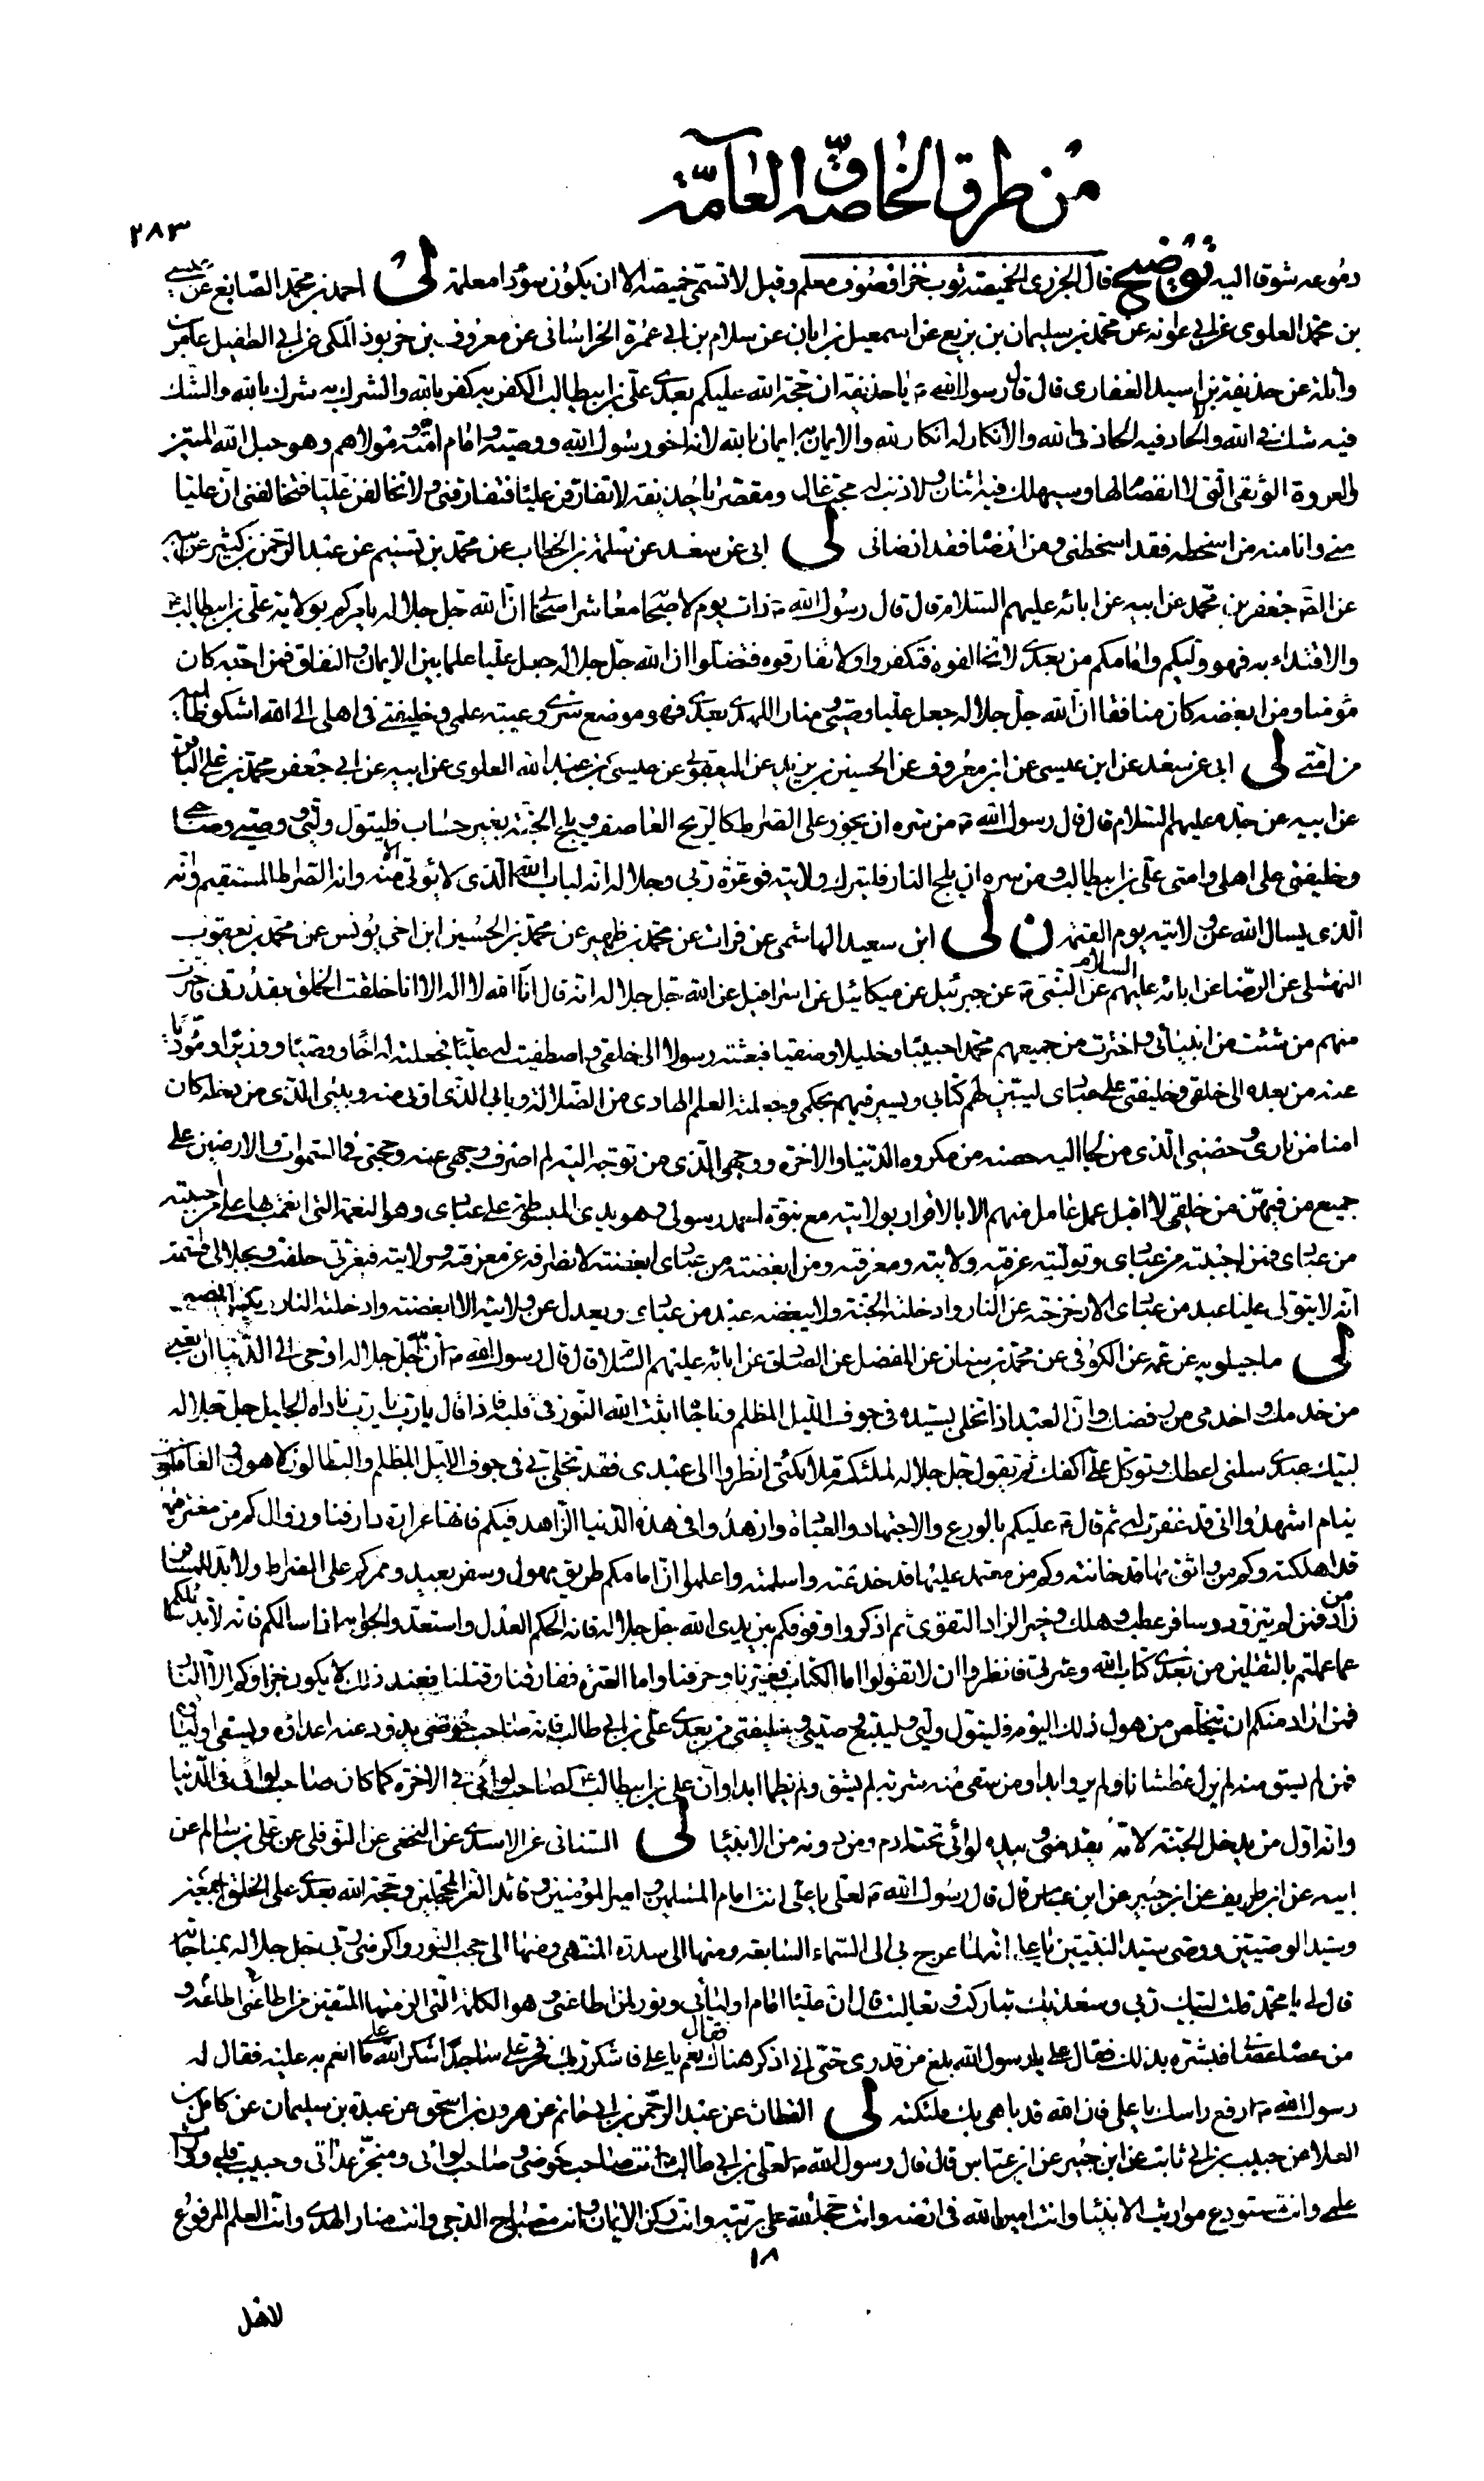 من طرق الخاصة و العامة
٢٨٣
دموعه شوقا اليه توضيح قال الجزرى الخميصة ثوب خز او صوف معلم و قيل لا تسمى خميصة الا ان يكون سوداء معلمة لى احمد بن محمد الصايغ عن عيسى
بن محمد العلوى عن ابى عوانه عن محمد بن سليمان بن بزيع عن اسمعيل بن ابان عن سلام بن ابى عمرة الخراسانى عن معروف بن خربوذ المكى عن ابى الطفيل عامر بن
واثلة عن حذيفة بن اسيد الغفارى قال قال رسول الله ص يا حذيفة ان حجة الله عليكم بعدى على بن ابيطالب الكفر به كفر بالله و الشرك به شرك بالله و الشك
فيه شك فى الله و الالحاد فيه الحاد فى الله و الانكار له انكار لله و الايمان به ايمان بالله لانه اخو رسول الله و وصيه و امام امته و مولاهم و هو حبل الله المتين
و العروة الوثقى التى لا انفصام لها و سيهلك فيه اثنان و لا ذنب له محب غال و مقصر يا حذيفة لا تفارقن عليا فتفارقنى و لا تخالفن عليا فتخالفنى ان عليا
منى و انا منه من اسخطه فقد اسخطنى و من ارضاه فقد ارضانى لى ابى عن سعد عن سلمة بن الخطاب عن محمد بن تسنيم عن عبد الرحمن بن كثير عن ابيه
عن الص جعفر بن محمد عن ابيه عن ابائه عليهم السلام قال قال رسول الله ص ذات يوم لاصحابه معاشر اصحابى ان الله جل جلاله يامركم بولاية على بن ابيطالب ع
و الاقتداء به فهو وليكم و امامكم من بعدى لا تخالفوه فتكفروا و لا تفارقوه فتضلوا ان الله جل جلاله جعل عليا علما بين الايمان و النفاق فمن احبه كان
مؤمنا و من ابغضه كان منافقا ان الله جل جلاله جعل عليا وصيى و منار الهدى بعدى فهو موضع سرى و عيبة علمى و خليفتى فى اهلى الى الله اشكو ظالميه
من امتى لى ابى عن سعد عن ابن عيسى عن ابن معروف عن الحسين بن يزيد عن اليعقوبى عن عيسى بن عبد الله العلوى عن ابيه عن ابى جعفر محمد بن على الباقر
عن ابيه عن جده عليهم السلام قال قال رسول الله ص من سره ان يجوز على الصراط كالريح العاصف و يلج الجنة بغير حساب فليتول وليى و وصيى و صاحبى
و خليفتى على اهلى و امتى على بن ابيطالب و من سره ان يلج النار فليترك ولايته فو عزة ربى و جلاله انه لباب الله الذى لا يؤتى الا منه و انه الصراط المستقيم و انه
الذى يسال الله عن ولايته يوم القيمة ن لى ابن سعيد الهاشمى عن فرات عن محمد بن ظهير عن محمد بن الحسين ابن اخى يونس عن محمد بن يعقوب
النهشلى عن الرضا عن ابائه عليهم السلام عن النبى ص عن جبرئيل عن ميكائيل عن اسرافيل عن الله جل جلاله انه قال انا الله لا اله الا انا خلقت الخلق بقدرتى فاخترت
منهم من شئت من انبيائى و اخترت من جميعهم محمدا حبيبا و خليلا و صفيا فبعثته رسولا الى خلقى و اصطفيت له عليا فجعلته له اخا و وصيا و وزيرا و مؤديا
عنه من بعده الى خلقى و خليفتى على عبادى ليبين لهم كتابى و يسير فيهم بحكمى و جعلته العلم الهادى من الضلالة و بابى الذى اوتى منه و بيتى الذى من دخله كان
امنا من نارى و حصنى الذى من لجا اليه حصنه من مكروه الدنيا و الاخرة و وجهى الذى من توجه اليه لم اصرف وجهى عنه و حجتى فى السموات و الارضين على
جميع من فيهن من خلقى لا اقبل عمل عامل منهم الا بالاقرار بولايته مع نبوة احمد رسولى و هو يدى المبسوطة على عبادى و هو النعمة التى انعمت بها على من احببته
من عبادى فمن احببته من عبادى و توليته عرفته ولايته و معرفته و من ابغضته من عبادى ابغضته لانصرافه عن معرفته و ولايته فبعزتى حلفت و بجلالى اقسمت
انه لا يتولى عليا عبد من عبادى الا زحزحته عن النار و ادخلته الجنة و لا يبغضه عبد من عبادى و يعدل عن ولايته الا ابغضته و ادخلته النار و بئس المصير
لى ماجيلويه عن عمه عن الكوفى عن محمد بن سنان عن المفضل عن الصادق عن ابائه عليهم السلام قال قال رسول الله ص ان الله جل جلاله اوحى الى الدنيا ان اتعبى
من خدمك و اخدمى من رفضك و ان العبد اذا تخلى بسيده فى جوف الليل المظلم و ناجاه اثبت الله النور فى قلبه فاذا قال يا رب يا رب ناداه الجليل جل جلاله
لبيك عبدى سلنى اعطك و توكل على اكفك ثم يقول جل جلاله لملئكته ملائكتى انظروا الى عبدى فقد تخلى بى فى جوف الليل المظلم و البطالون لاهون و الغافلون
ينام اشهدوا انى قد غفرت له ثم قال ص عليكم بالورع و الاجتهاد و العبادة و ازهدوا فى هذه الدنيا الزاهدة فيكم فانها غرارة دار فناء و زوال كم من مغتر بها
قد اهلكته و كم من واثق بها قد خانته و كم من معتمد عليها قد خدعته و اسلمته و اعلموا ان امامكم طريق مهول و سفر بعيد و ممركم على الصراط و لا بد للمسافر من
زاد فمن لم يتزود و سافر عطب و هلك و خير الزاد التقوى ثم اذكروا وقوفكم بين يدى الله جل جلاله فانه الحكم العدل و استعدوا لجوابه اذا سالكم فانه لا بد سائلكم
عما عملتم بالثقلين من بعدى كتاب الله و عترتى فانظروا ان لا تقولوا اما الكتاب فغيرنا و حرفنا و اما العترة ففارقنا و قتلنا فعند ذلك لا يكون جزاؤكم الا النار
فمن اراد منكم ان يتخلص من هول ذلك اليوم فليتول وليى و ليتبع وصيى و خليفتى من بعدى على بن ابى طالب فانه صاحب حوضى يذود عنه اعداءه و يسقى اولياءه
فمن لم يسق منه لم يزل عطشانا و لم يرو ابدا و من سقى منه شربة لم يشق و لم يظما ابدا و ان على بن ابيطالب ع لصاحب لوائى فى الاخرة كما كان صاحب لوائى فى الدنيا
و انه اول من يدخل الجنة لانه يقدمنى و بيده لوائى تحته ادم و من دونه من الانبياء لى السنانى عن الاسدى عن النخعى عن النوفلى عن على بن سالم عن
ابيه عن ابن طريف عن ابن جبير عن ابن عباس قال قال رسول الله ص لعلى يا على انت امام المسلمين و امير المؤمنين و قائد الغر المحجلين و حجة الله بعدى على الخلق اجمعين
و سيد الوصيين و وصى سيد النبيين يا على انه لما عرج بى الى السماء السابعة و منها الى سدرة المنتهى و منها الى حجب النور و اكرمنى ربى جل جلاله بمناجاته
قال لى يا محمد قلت لبيك ربى و سعديك تباركت و تعاليت قال ان عليا امام اوليائى و نور لمن اطاعنى و هو الكلمة التى الزمتها المتقين من اطاعه اطاعنى و
من عصاه عصانى فبشره بذلك فقال على يا رسول الله بلغ من قدرى حتى انى اذكر هناك فقال نعم يا على فاشكر ربك فخر على ساجدا شكرا لله على ما انعم به عليه فقال له
رسول الله ص ارفع راسك يا على فان الله قد باهى بك ملئكته لى القطان عن عبد الرحمن بن ابى حاتم عن هرون بن اسحق عن عبدة بن سليمان عن كامل بن
العلا عن حبيب بن ابى ثابت عن ابن جبير عن ابن عباس قال قال رسول الله ص لعلى بن ابى طالب ع انت صاحب حوضى و صاحب لوائى و منجز عداتى و حبيب قلبى و وارث
علمى و انت مستودع مواريث الانبياء و انت امين الله فى ارضه و انت حجة الله على بريته و انت ركن الايمان و انت مصباح الدجى و انت منار الهدى و انت العلم المرفوع
١٨
لاهل